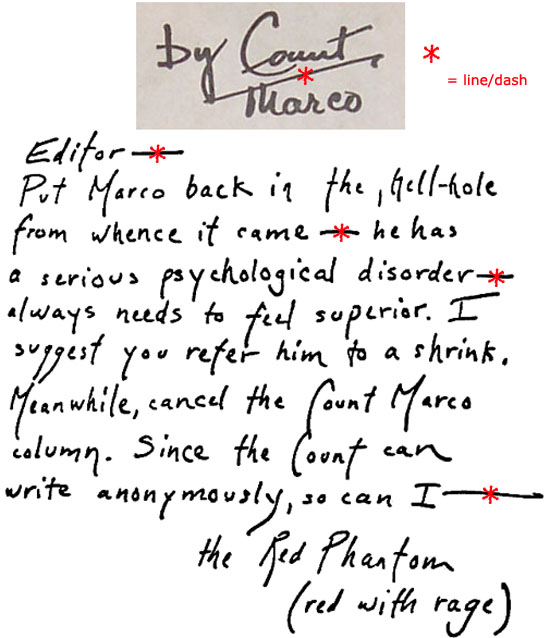 by Count
Marco
*
= line/dash
Editor —
Put Marco back in the, hell-hole
from whence it came — he has
a serious psychological disorder —
always needs to feel superior. I
suggest you refer him to a shrink.
Meanwhile, cancel the Count Marco
column. Since the Count can
write anonymously, so can I —
the Red Phantom
(red with rage)